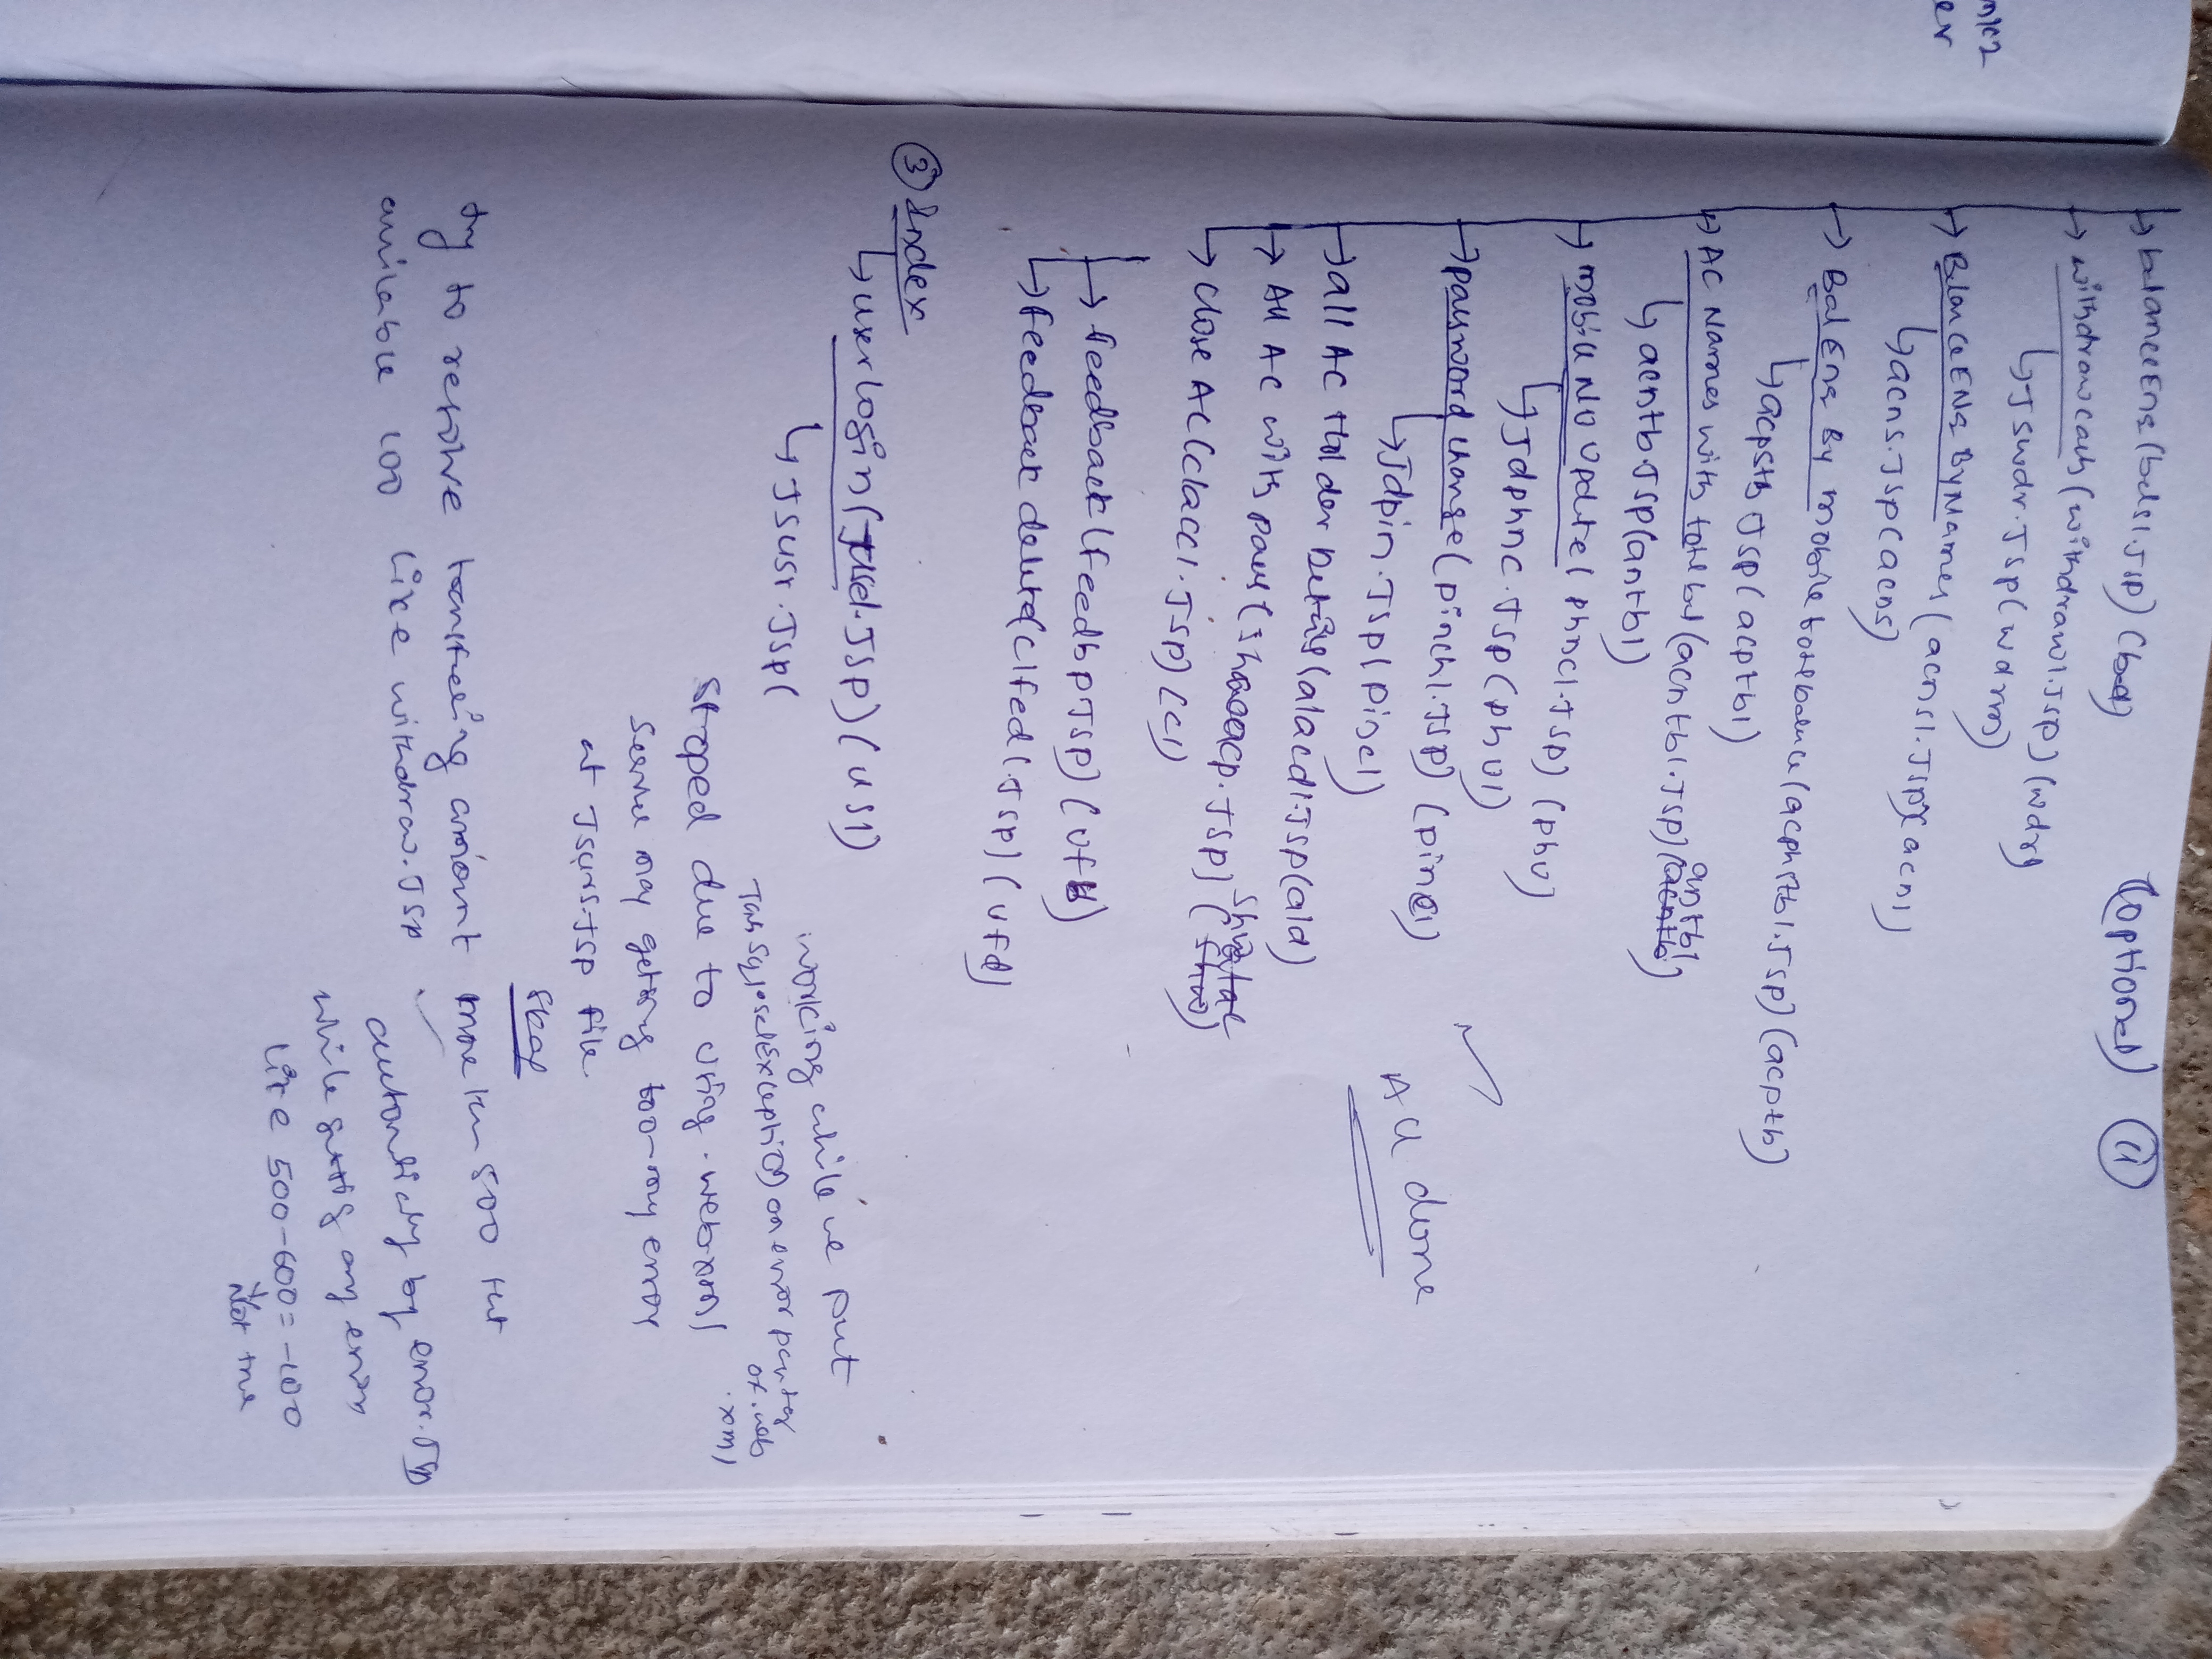 (optional) 11
→ balanceEnq (bals1.JSP) (bad)
→ withdrawcash (withdraw1.JSP) (wdr)
↳ JSwdr.JSP (wdrm)
→ BlanceENQ ByNames (acns1.JSP) (acn1)
↳ acns.JSP (acns)
→ Bal Enq By mobile totelbalance (acphstb1.JSP) (acptb)
↳ acpstb JSP (acptb1)
→ AC Names with totel bal (acntb1.JSP) (antb1)
↳ acntb.JSP (antb1)
→ mobile NO update (phnc1.JSP) (phu)
↳ Jdphnc.JSP (phu1)
→ password change (pinch1.JSP) (pinc1)
↳ Jdpin.JSP (pinc1)
All done
→ all AC Holder Details (alacd1.JSP (ald)
→ All AC with pass ( .JSP)
→ close AC (clacc1.JSP) (c1)
→ feedback (feedbpJSP) (ufb)
→ feedback delete (clfed1.JSP) (ufd)
③ Index
↳ user login ( .JSP) (us1)
↳ JSusr.JSP (
working while we put
on error
of .web
.xml
Stoped due to using .web.xml
getting too-many error
at JSurs.JSP file
try to resolve amount more than 500 that
available 100 like withdraw.JSP
by error.JSP
while getting any error
like 500-600= -100
Not true
mic2
er